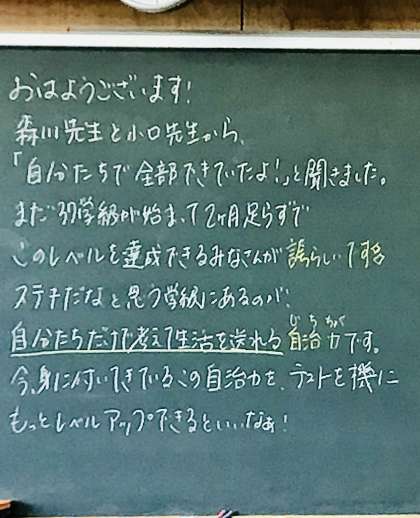 おはようございます!
森川先生と小口先生から、
「自分たちで全部できていたよ!」と聞きました。
まだ学級が始まって2ヶ月足らずで
このレベルを達成できるみなさんが誇らしいです
ステキだなと思う学級にあるのが!
じち
自分たちだけで考えて生活を送れる自治力です。
今、身に付いてきているこの自治力を、テストを機に
もっとレベルアップできるといいなぁ!